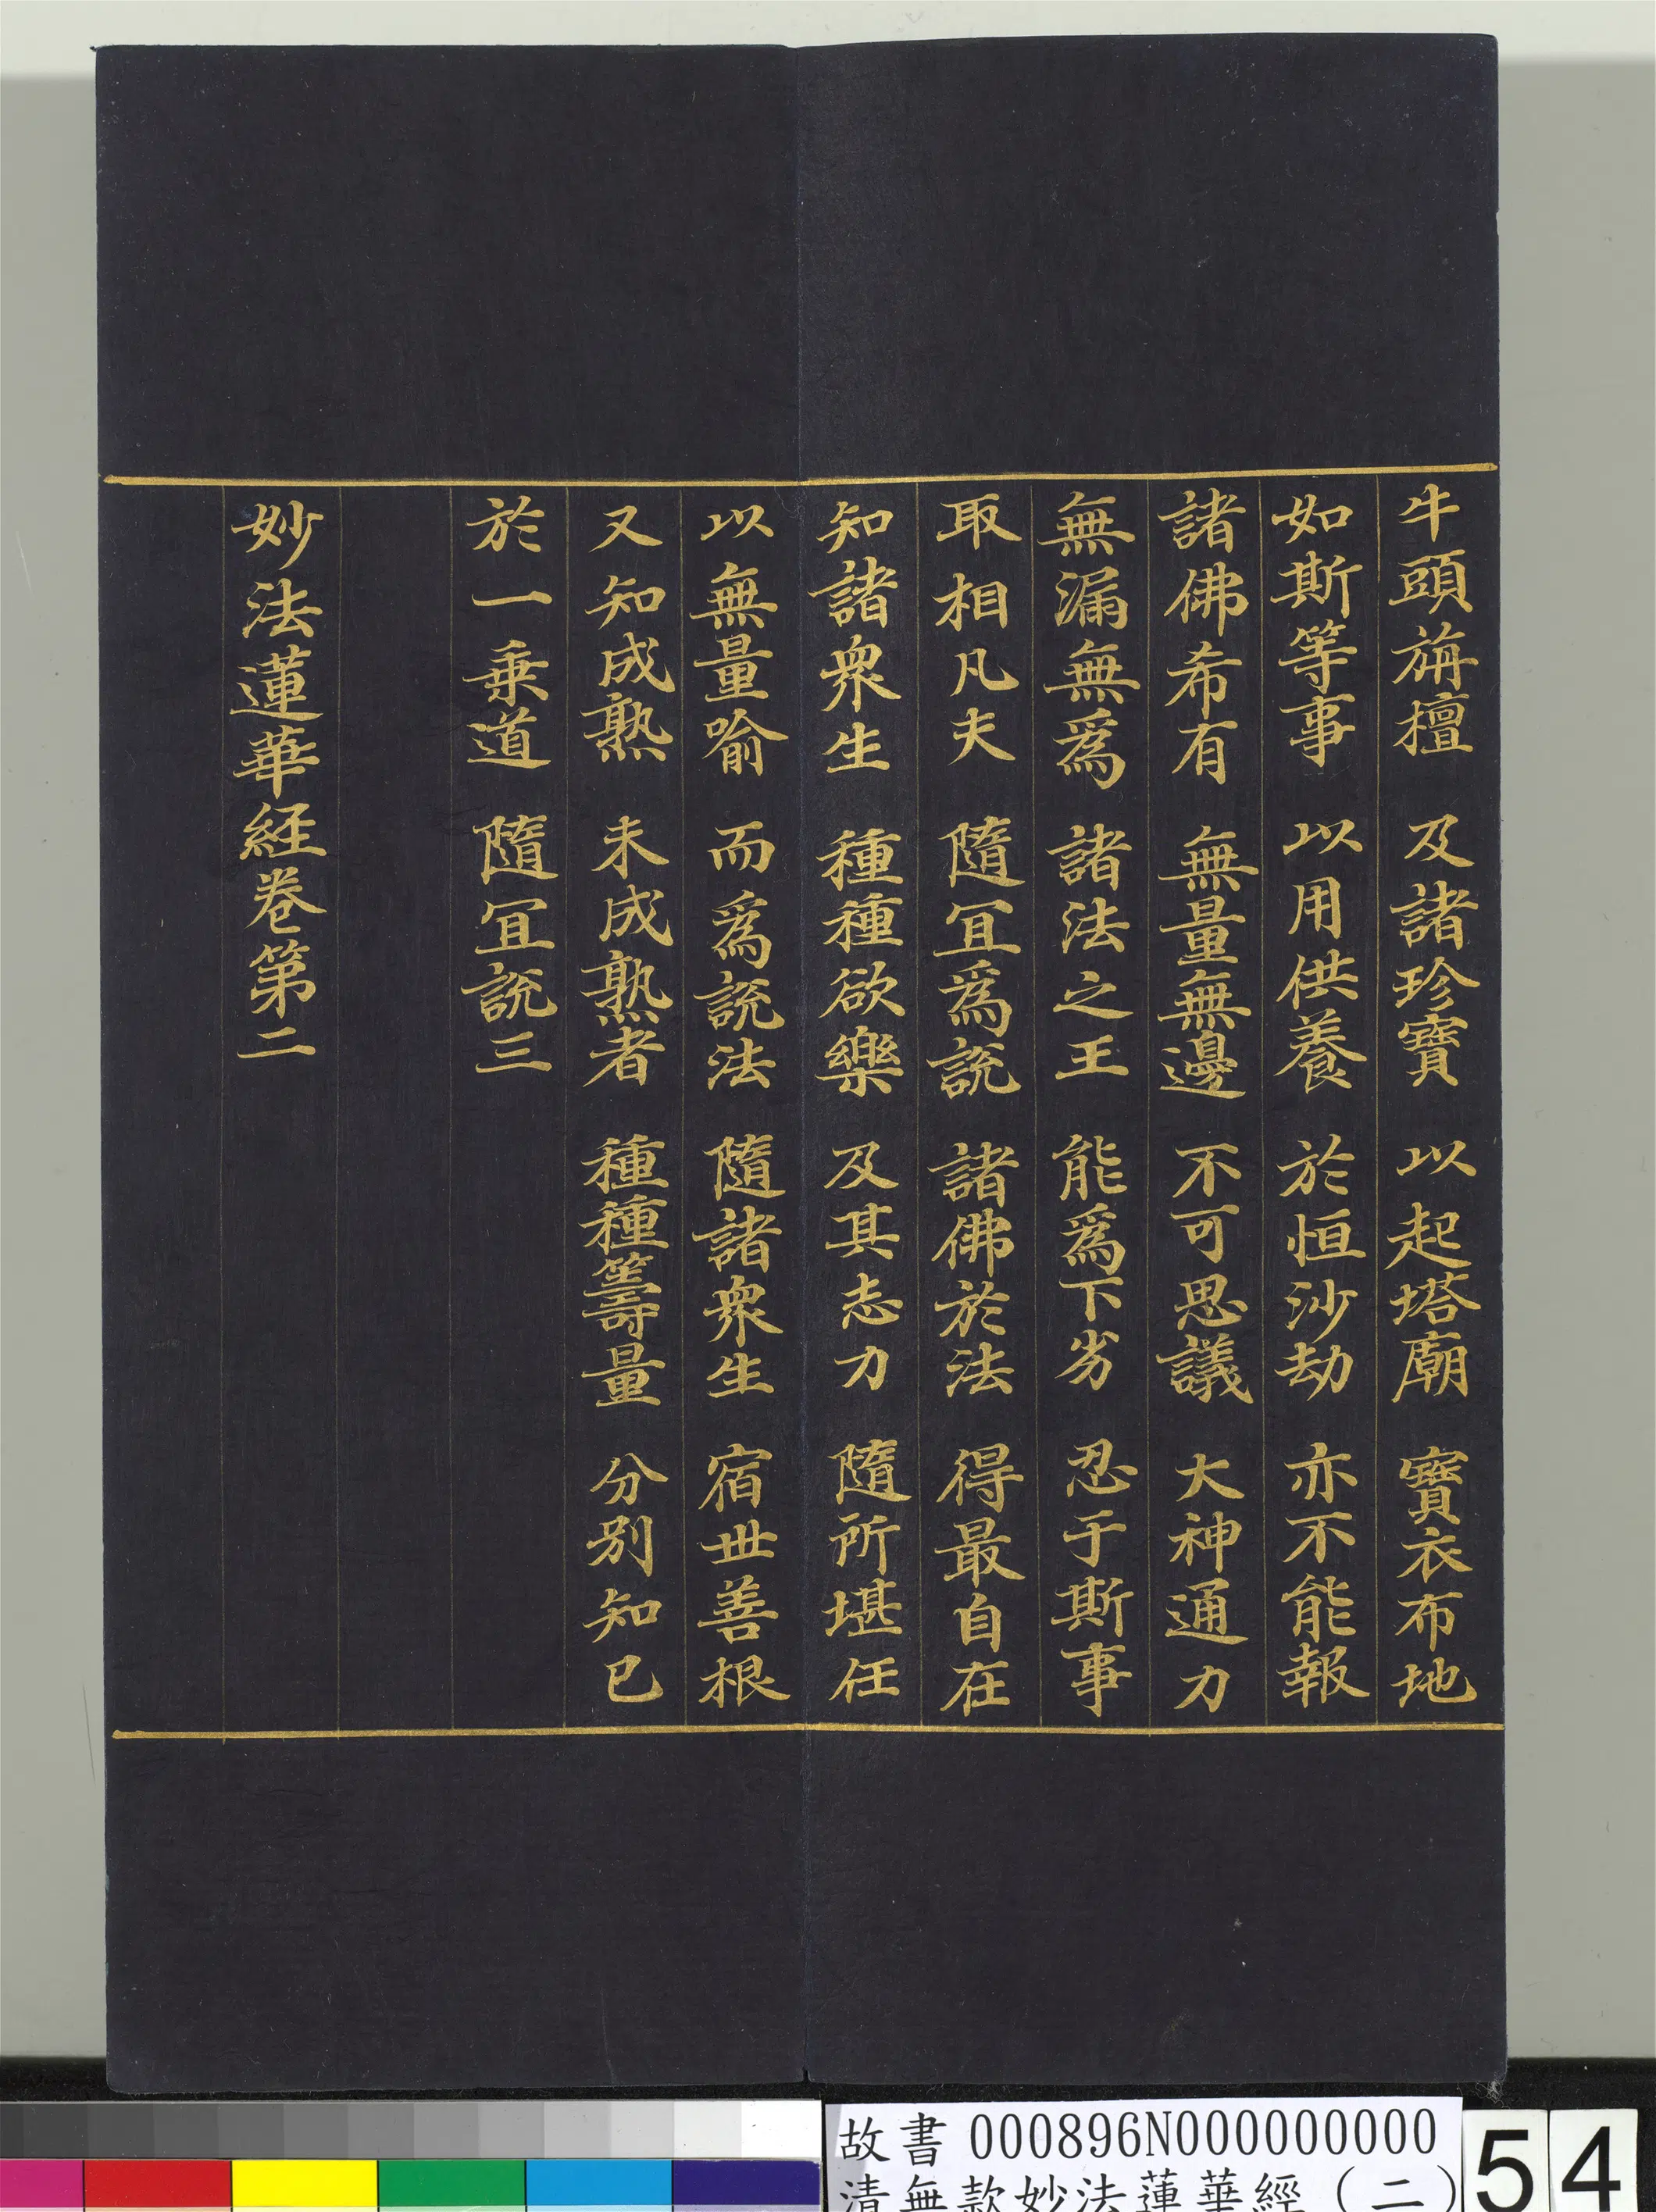 牛頭旃檀 及諸珍寶 以起塔廟 寶衣布地
如斯等事 以用供養 於恒沙劫 亦不能報
諸佛希有 無量無邊 不可思議 大神通力
無漏無為 諸法之王 能為下劣 忍于斯事
取相凡夫 隨宜為說 諸佛於法 得最自在
知諸眾生 種種欲樂 及其志力 隨所堪任
以無量喻 而為說法 隨諸眾生 宿世善根
又知成熟 未成熟者 種種籌量 分別知已
於一乘道 隨宜說三
妙法蓮華經卷第二
故書 000896N000000000
清無款妙法蓮華經(二)
54